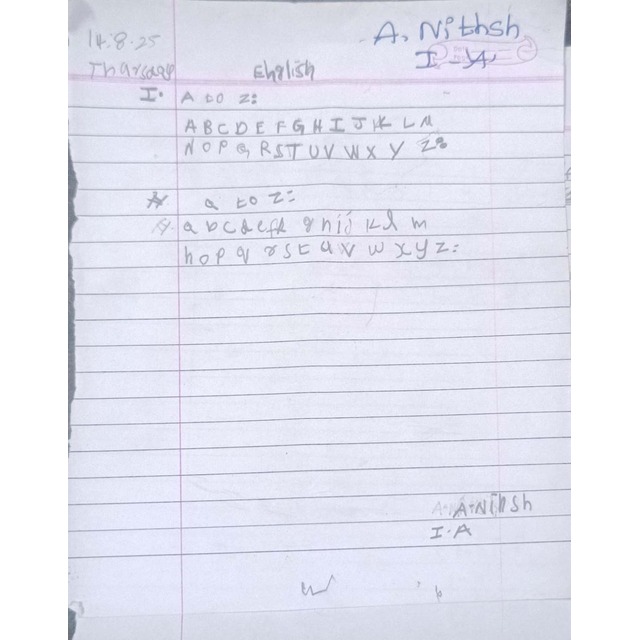 A. Nithsh
14.8.25
I-A
Tharsday
English
I. A to z:
A B C D E F G H I J K L M
N O P Q R S T U V W X Y Z:
a to z:
a b c d e f g h i j k l m
n o p q r s t u v w x y z:
A. Nithsh
I.A